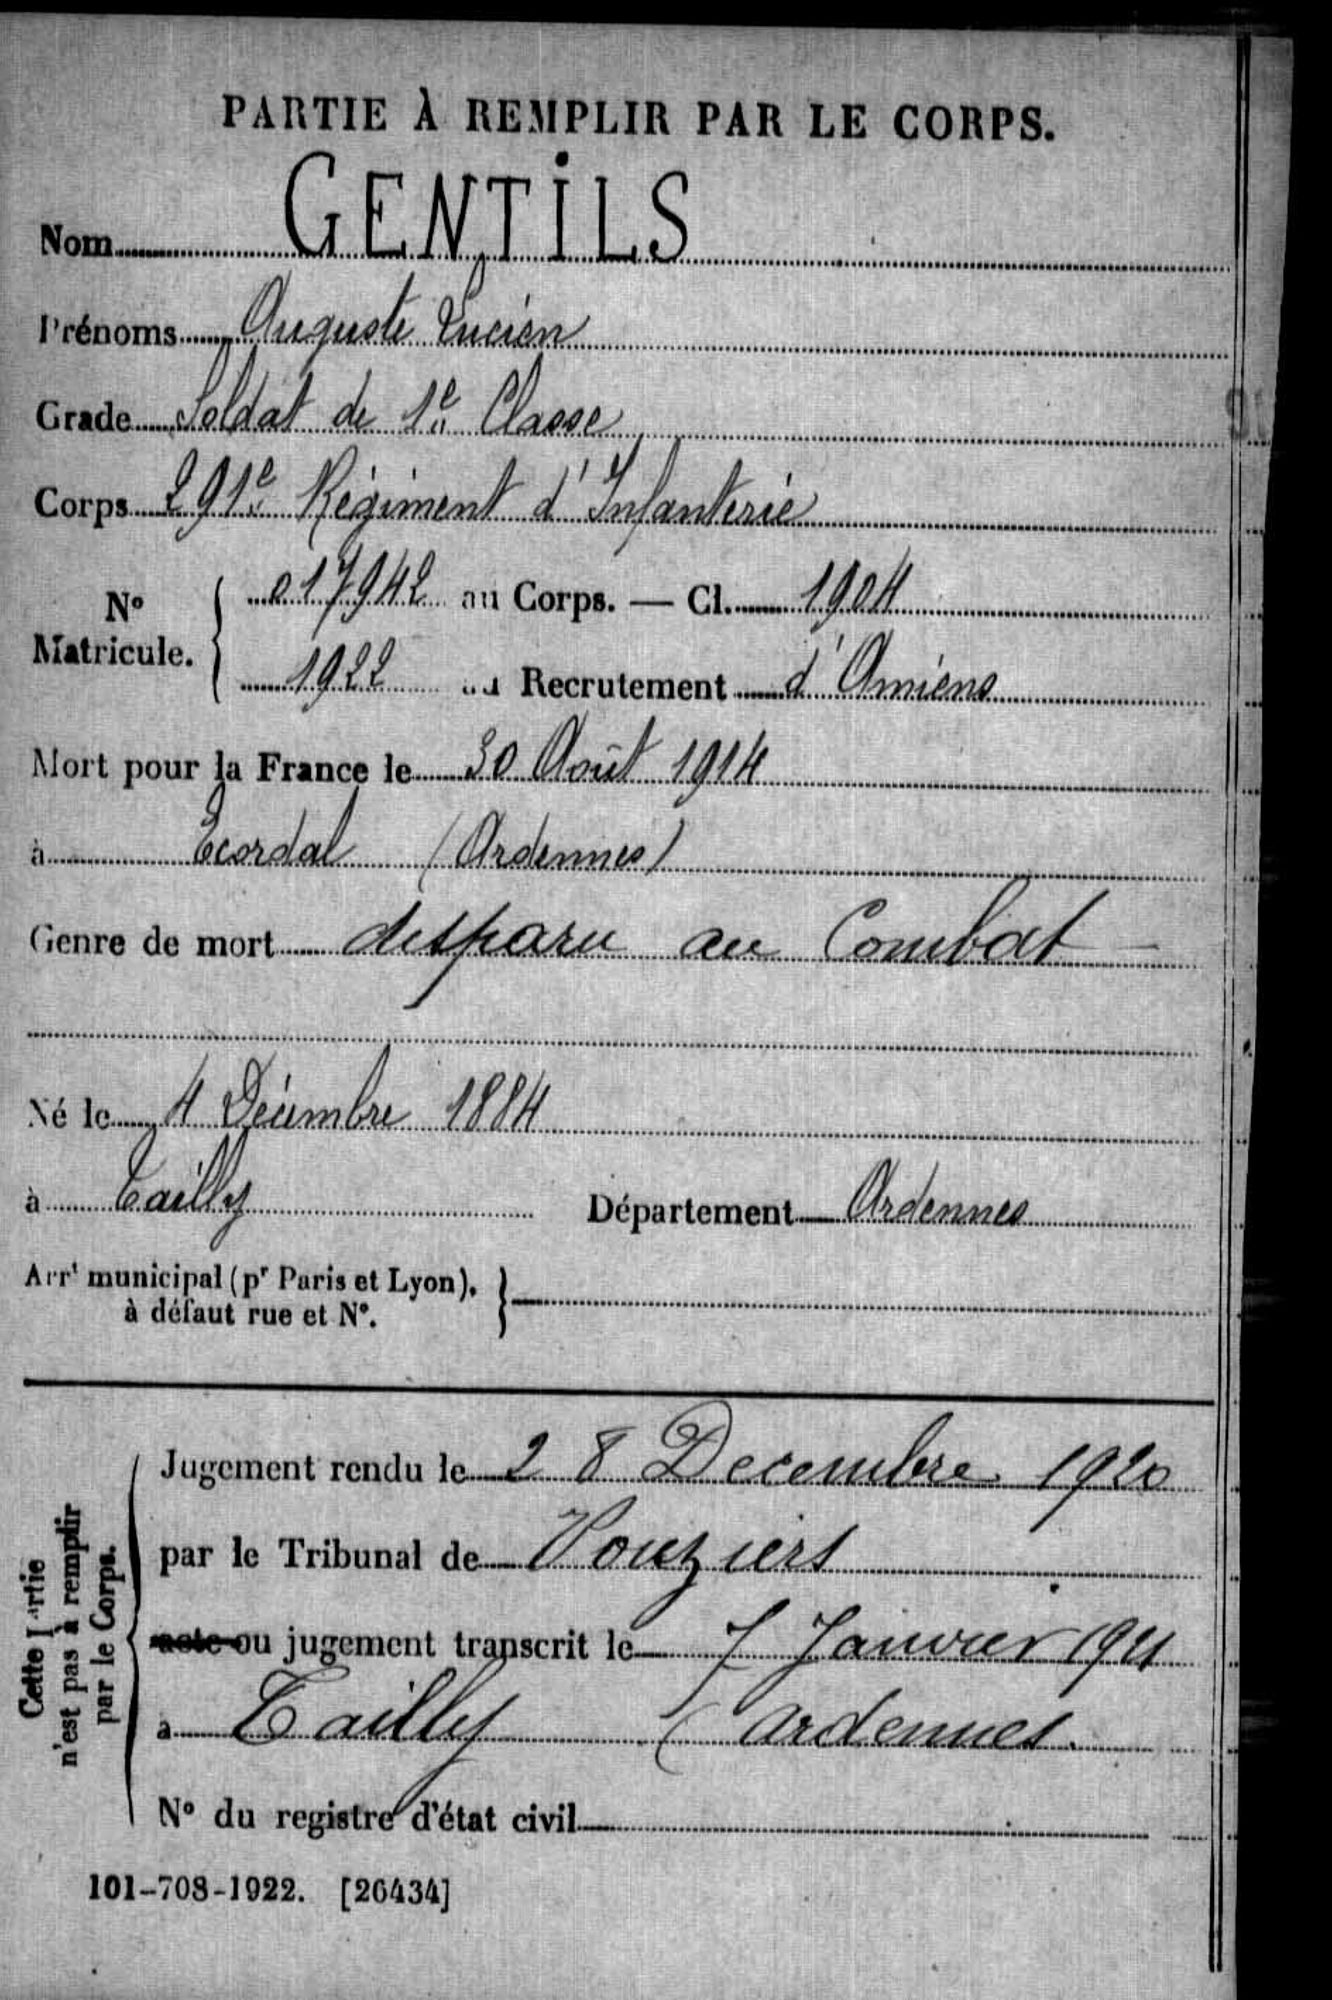 PARTIE À REMPLIR PAR LE CORPS.
Nom GENTILS
Prénoms Auguste Lucien
Grade Soldat de 1e Classe
Corps 291e Régiment d'Infanterie
N° Matricule. 017942 au Corps. — Cl. 1904
1922 au Recrutement d'Amiens
Mort pour la France le 30 Août 1914
à Ecordal (Ardennes)
Genre de mort disparu au Combat
Né le 4 Décembre 1884
à Tailly Département Ardennes
Arrt municipal (pr Paris et Lyon),
à défaut rue et N°.
Cette partie
n'est pas à remplir
par le Corps.
Jugement rendu le 28 Decembre 1920
par le Tribunal de Vouziers
acte ou jugement transcrit le 7 Janvier 1921
à Tailly (Ardennes.
N° du registre d'état civil
101-708-1922. [26434]